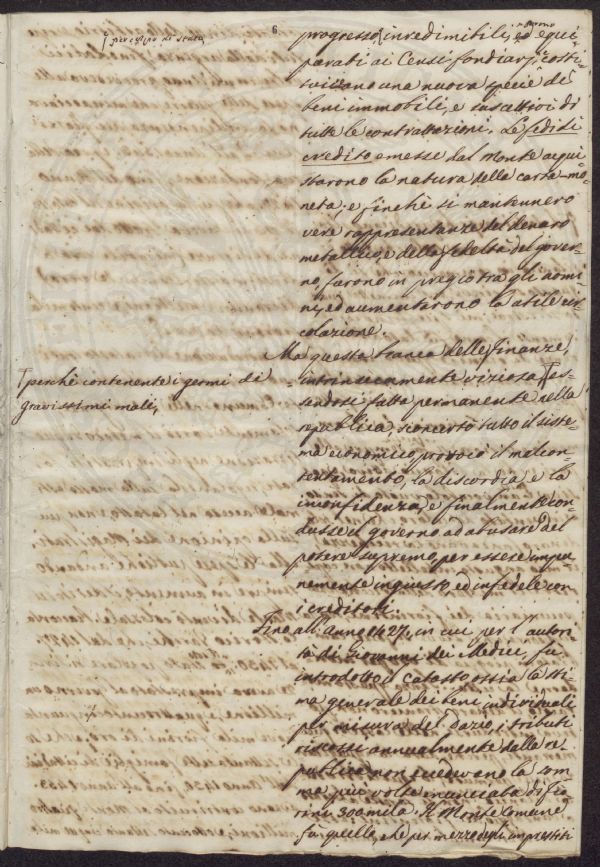 6
progresso, irredimibili, ed equi-
parati ai Censi fondiarj, costi-
tuivano una nuova specie di
beni immobili, e suscettivi di
tutte le contrattazioni. Le fedi di
credito emesse dal Monte acqui-
starono la natura della carta-mo-
neta; e finchè si mantennero
vere rappresentanze del denaro
metallico, e della fedeltà del gover-
no, furono in pregio tra gli uomi-
ni, ed aumentarono la utile cir-
colazione.
Ma questa branca delle Finanze,
perchè contenente i germi di
gravissimi mali,
intrinsecamente viziosa, es-
sendosi fatta permanente nella
repubblica, sconcertò tutto il siste-
ma economico, provocò il malcon-
tentamento, la discordia e la
inconfidenza, e finalmente con-
dusse il governo ad abusare del
potere supremo, per essere impu-
nemente ingiusto, ed infedele con
i creditori.
Fino all'anno 1427, in cui per l'autori-
tà di Giovanni dei Medici, fu
introdotto il catasto ossia la sti-
ma generale dei beni individuali
per misura del dazio, i tributi
riscossi annualmente dalla re-
pubblica non eccedevano la som-
ma più volte enunciata di fio-
rini 300 mila. Il Monte Comune
fu quello, che per mezzo degli imprestiti